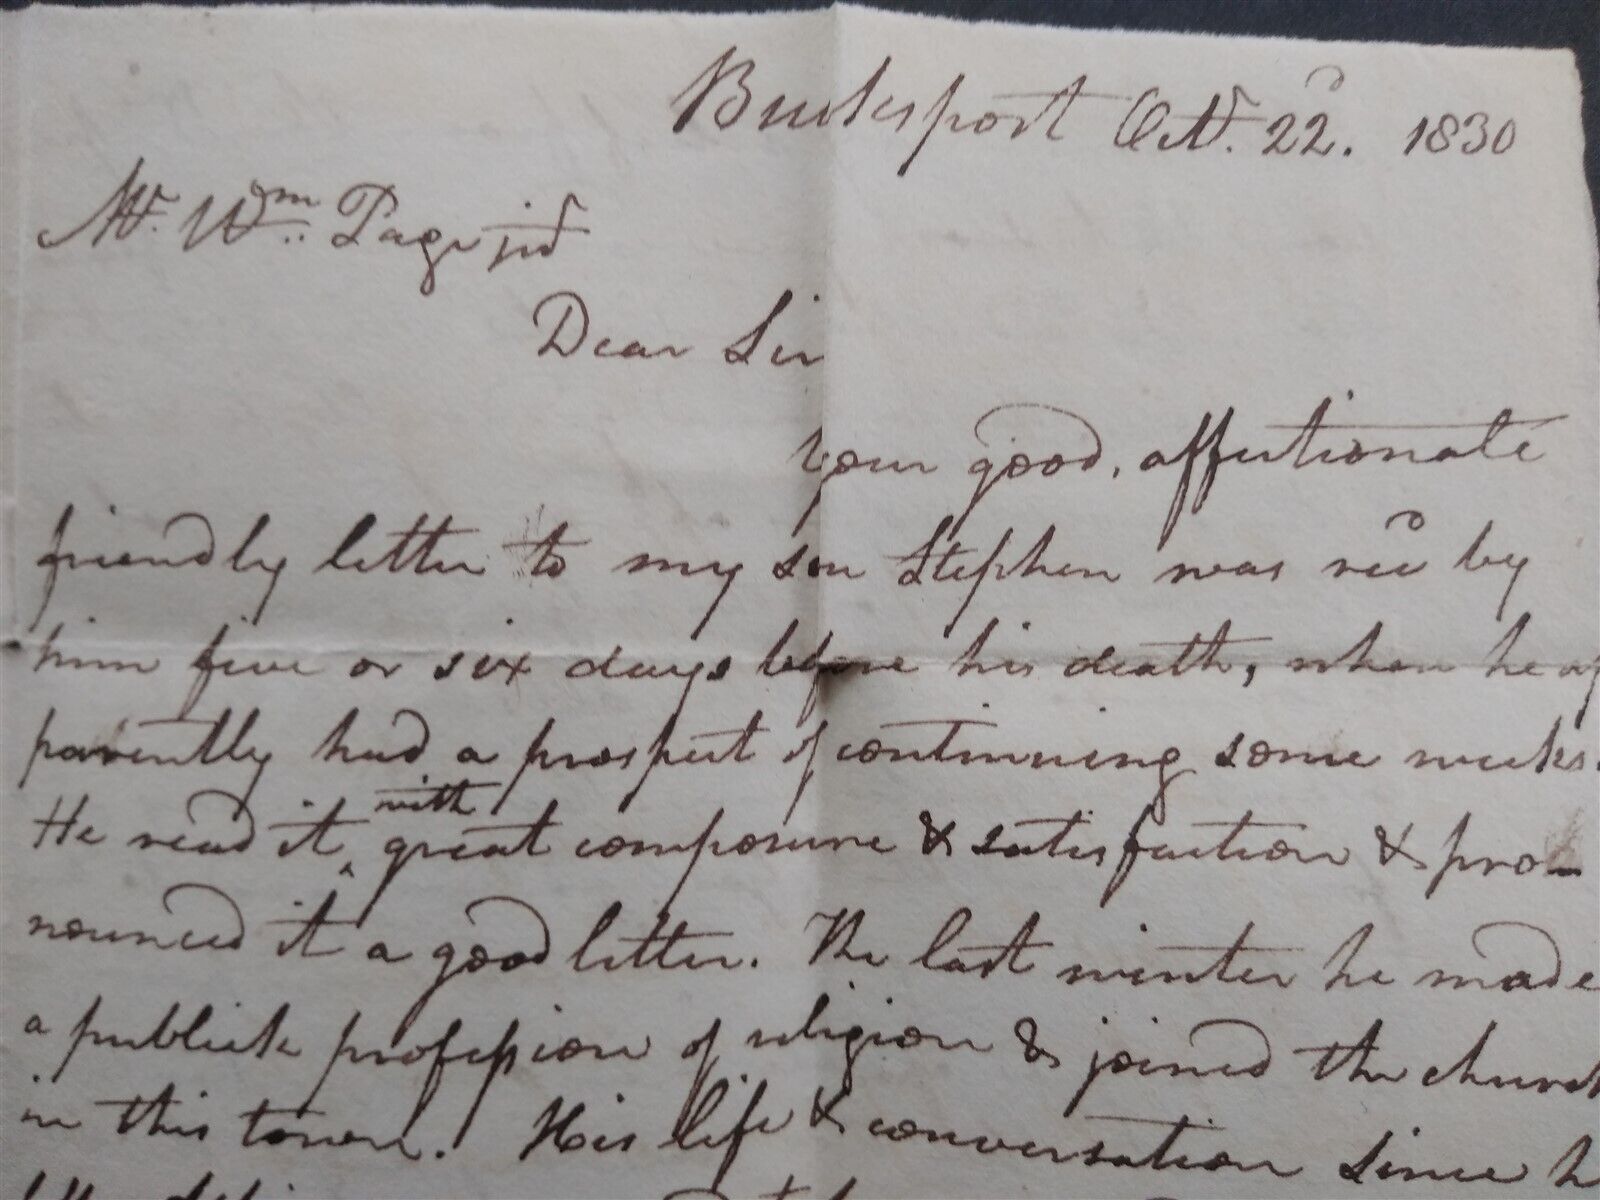 Bucksport Oct. 22d. 1830
Mr. Wm. Page jr
Dear Sir
Your good, affectionate
friendly letter to my son Stephen was recd by
him five or six days before his death, when he ap
parently had a prospect of continuing some weeks.
He read it with great composure & satisfaction & pro-
nounced it a good letter. The last winter he made
a publick profession of religion & joined the church
in this town. His life & conversation since h